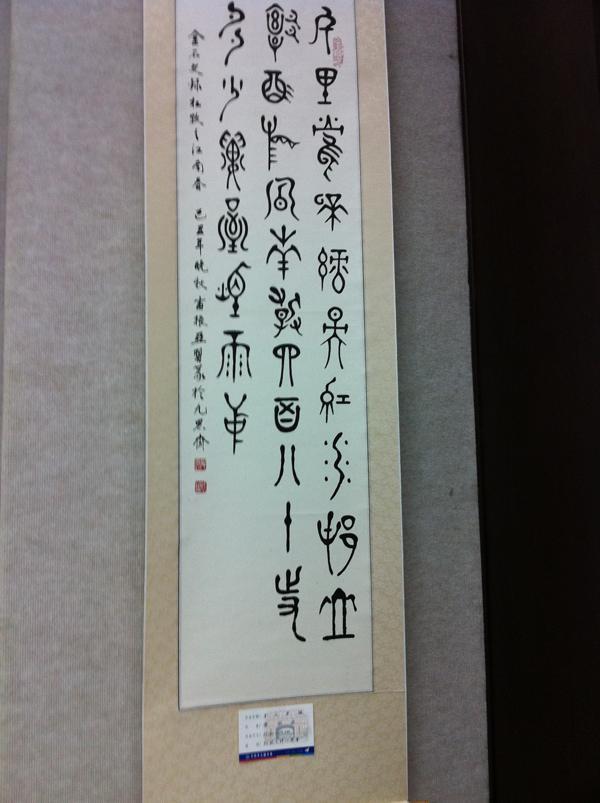 千里鶯啼綠映紅水村山
郭酒旗風南朝四百八十寺
多少樓臺煙雨中
金石文錄杜牧之江南春 己丑年晚秋 振 篆於九思齋